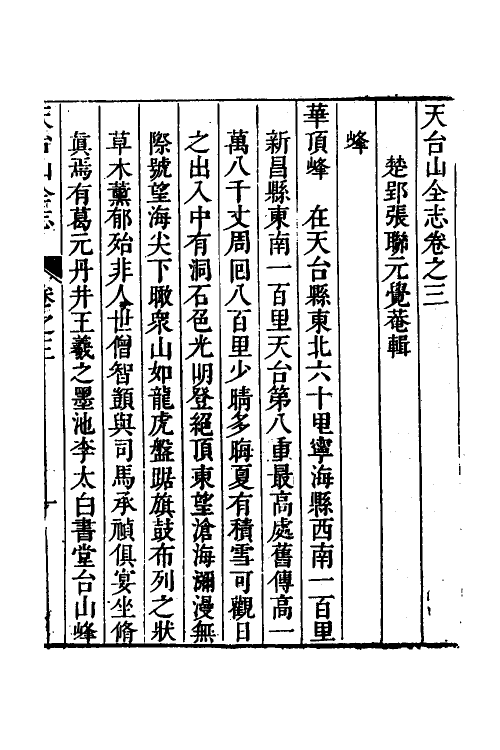 天台山全志卷之三
楚郢張聯元覺菴輯
峰
華頂峰　在天台縣東北六十里寧海縣西南一百里
新昌縣東南一百里天台第八重最高處舊傳高一
萬八千丈周回八百里少晴多晦夏有積雪可觀日
之出入中有洞石色光明登絕頂東望滄海瀰漫無
際號望海尖下瞰衆山如龍虎盤踞旗鼓布列之狀
草木薰郁殆非人世僧智顗與司馬承禎俱宴坐脩
眞焉有葛元丹井王羲之墨池李太白書堂台山峰
天台山全志
卷之三